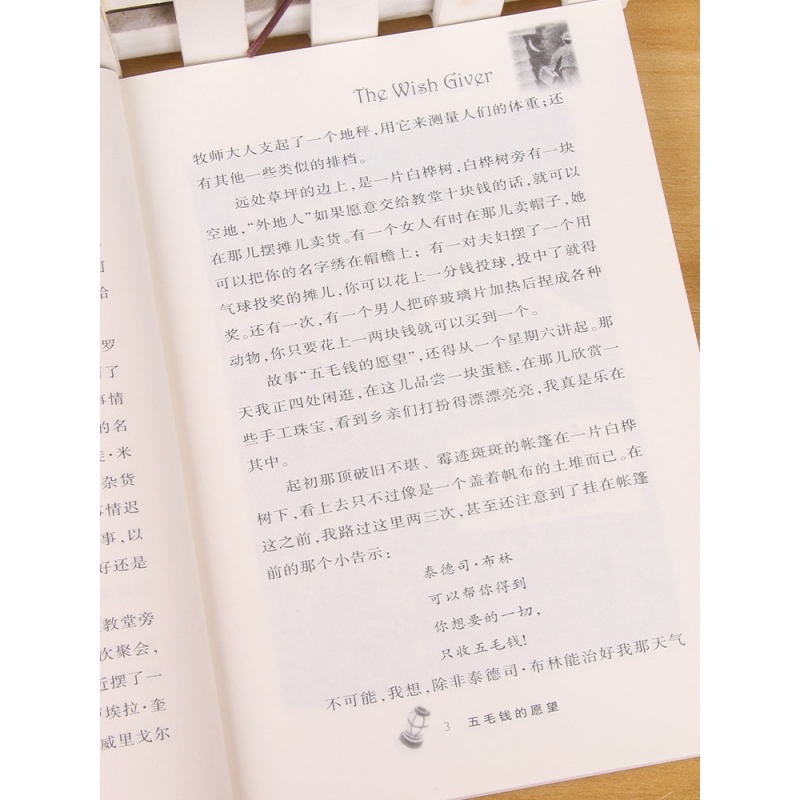 The Wish Giver
牧师大人支起了一个地秤，用它来测量人们的体重；还
有其他一些类似的排档。
远处草坪的边上，是一片白桦树，白桦树旁有一块
空地，“外地人”如果愿意交给教堂十块钱的话，就可以
在那儿摆摊儿卖货。有一个女人有时在那儿卖帽子，她
可以把你的名字绣在帽檐上；有一对夫妇摆了一个用
气球投奖的摊儿，你可以花上一分钱投球，投中了就得
奖。还有一次，有一个男人把碎玻璃片加热后捏成各种
动物，你只要花上一两块钱就可以买到一个。
故事“五毛钱的愿望”，还得从一个星期六讲起。那
天我正四处闲逛，在这儿品尝一块蛋糕，在那儿欣赏一
些手工珠宝，看到乡亲们打扮得漂漂亮亮，我真是乐在
其中。
起初那顶破旧不堪、霉迹斑斑的帐篷在一片白桦
树下，看上去只不过像是一个盖着帆布的土堆而已。在
这之前，我路过这里两三次，甚至还注意到了挂在帐篷
前的那个小告示：
泰德司·布林
可以帮你得到
你想要的一切，
只收五毛钱！
不可能，我想，除非泰德司·布林能治好我那天气
3 五毛钱的愿望
给
罗
了
事情
的名
·米
杂货
事情迟
事，以
好还是
教堂旁
次聚会，
近摆了一
埃拉·奎
威里戈尔